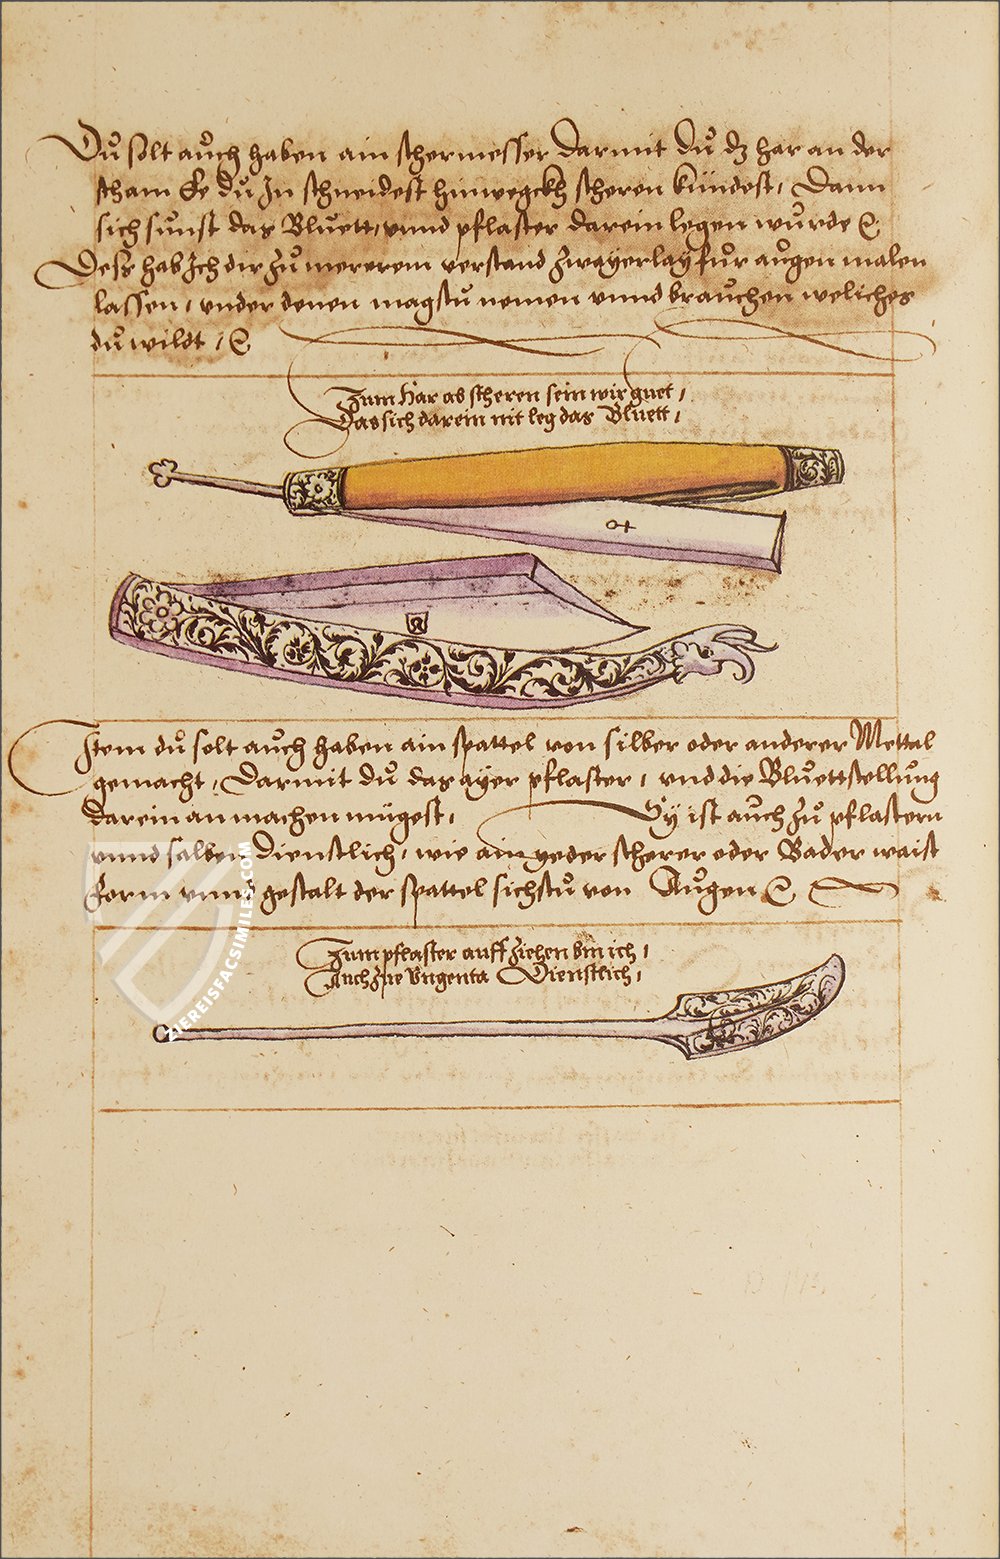 Dů solt aůch haben ain schermesser Darmit dů dz har an der
scham Ee dů In schneidest hinwegckh scheren kündest, Dann
sich sůnst das Blůett, vnnd pflaster darein legen wůrde ꝛc.
Dess hab Ich dir zů mererem verstand zwayerlay fůr aůgen malen
lassen, vnder denen magstů nemen vnnd braůchen weliches
dů wildt, ꝛc.
Zum Har ab scheren sein wir guet,
Das sich darein nit leg das Bluett,
Item dů solt aůch haben ain spattel von silber oder anderer Mettal
gemacht, Darmit dů das ayer pflaster, vnd die Blůettstellůng
darein an machen mügest, Sy ist aůch zů pflastern
vnnd salben Dienstlich, wie ain yeder scherer oder Bader waist
Form vnnd gestalt der spattel sichstů von Aůgen ꝛc.
Zum pflaster auff ziehen bin ich,
Auch zue Vngenta Dienstlich,
ZIEREISFACSIMILES.COM